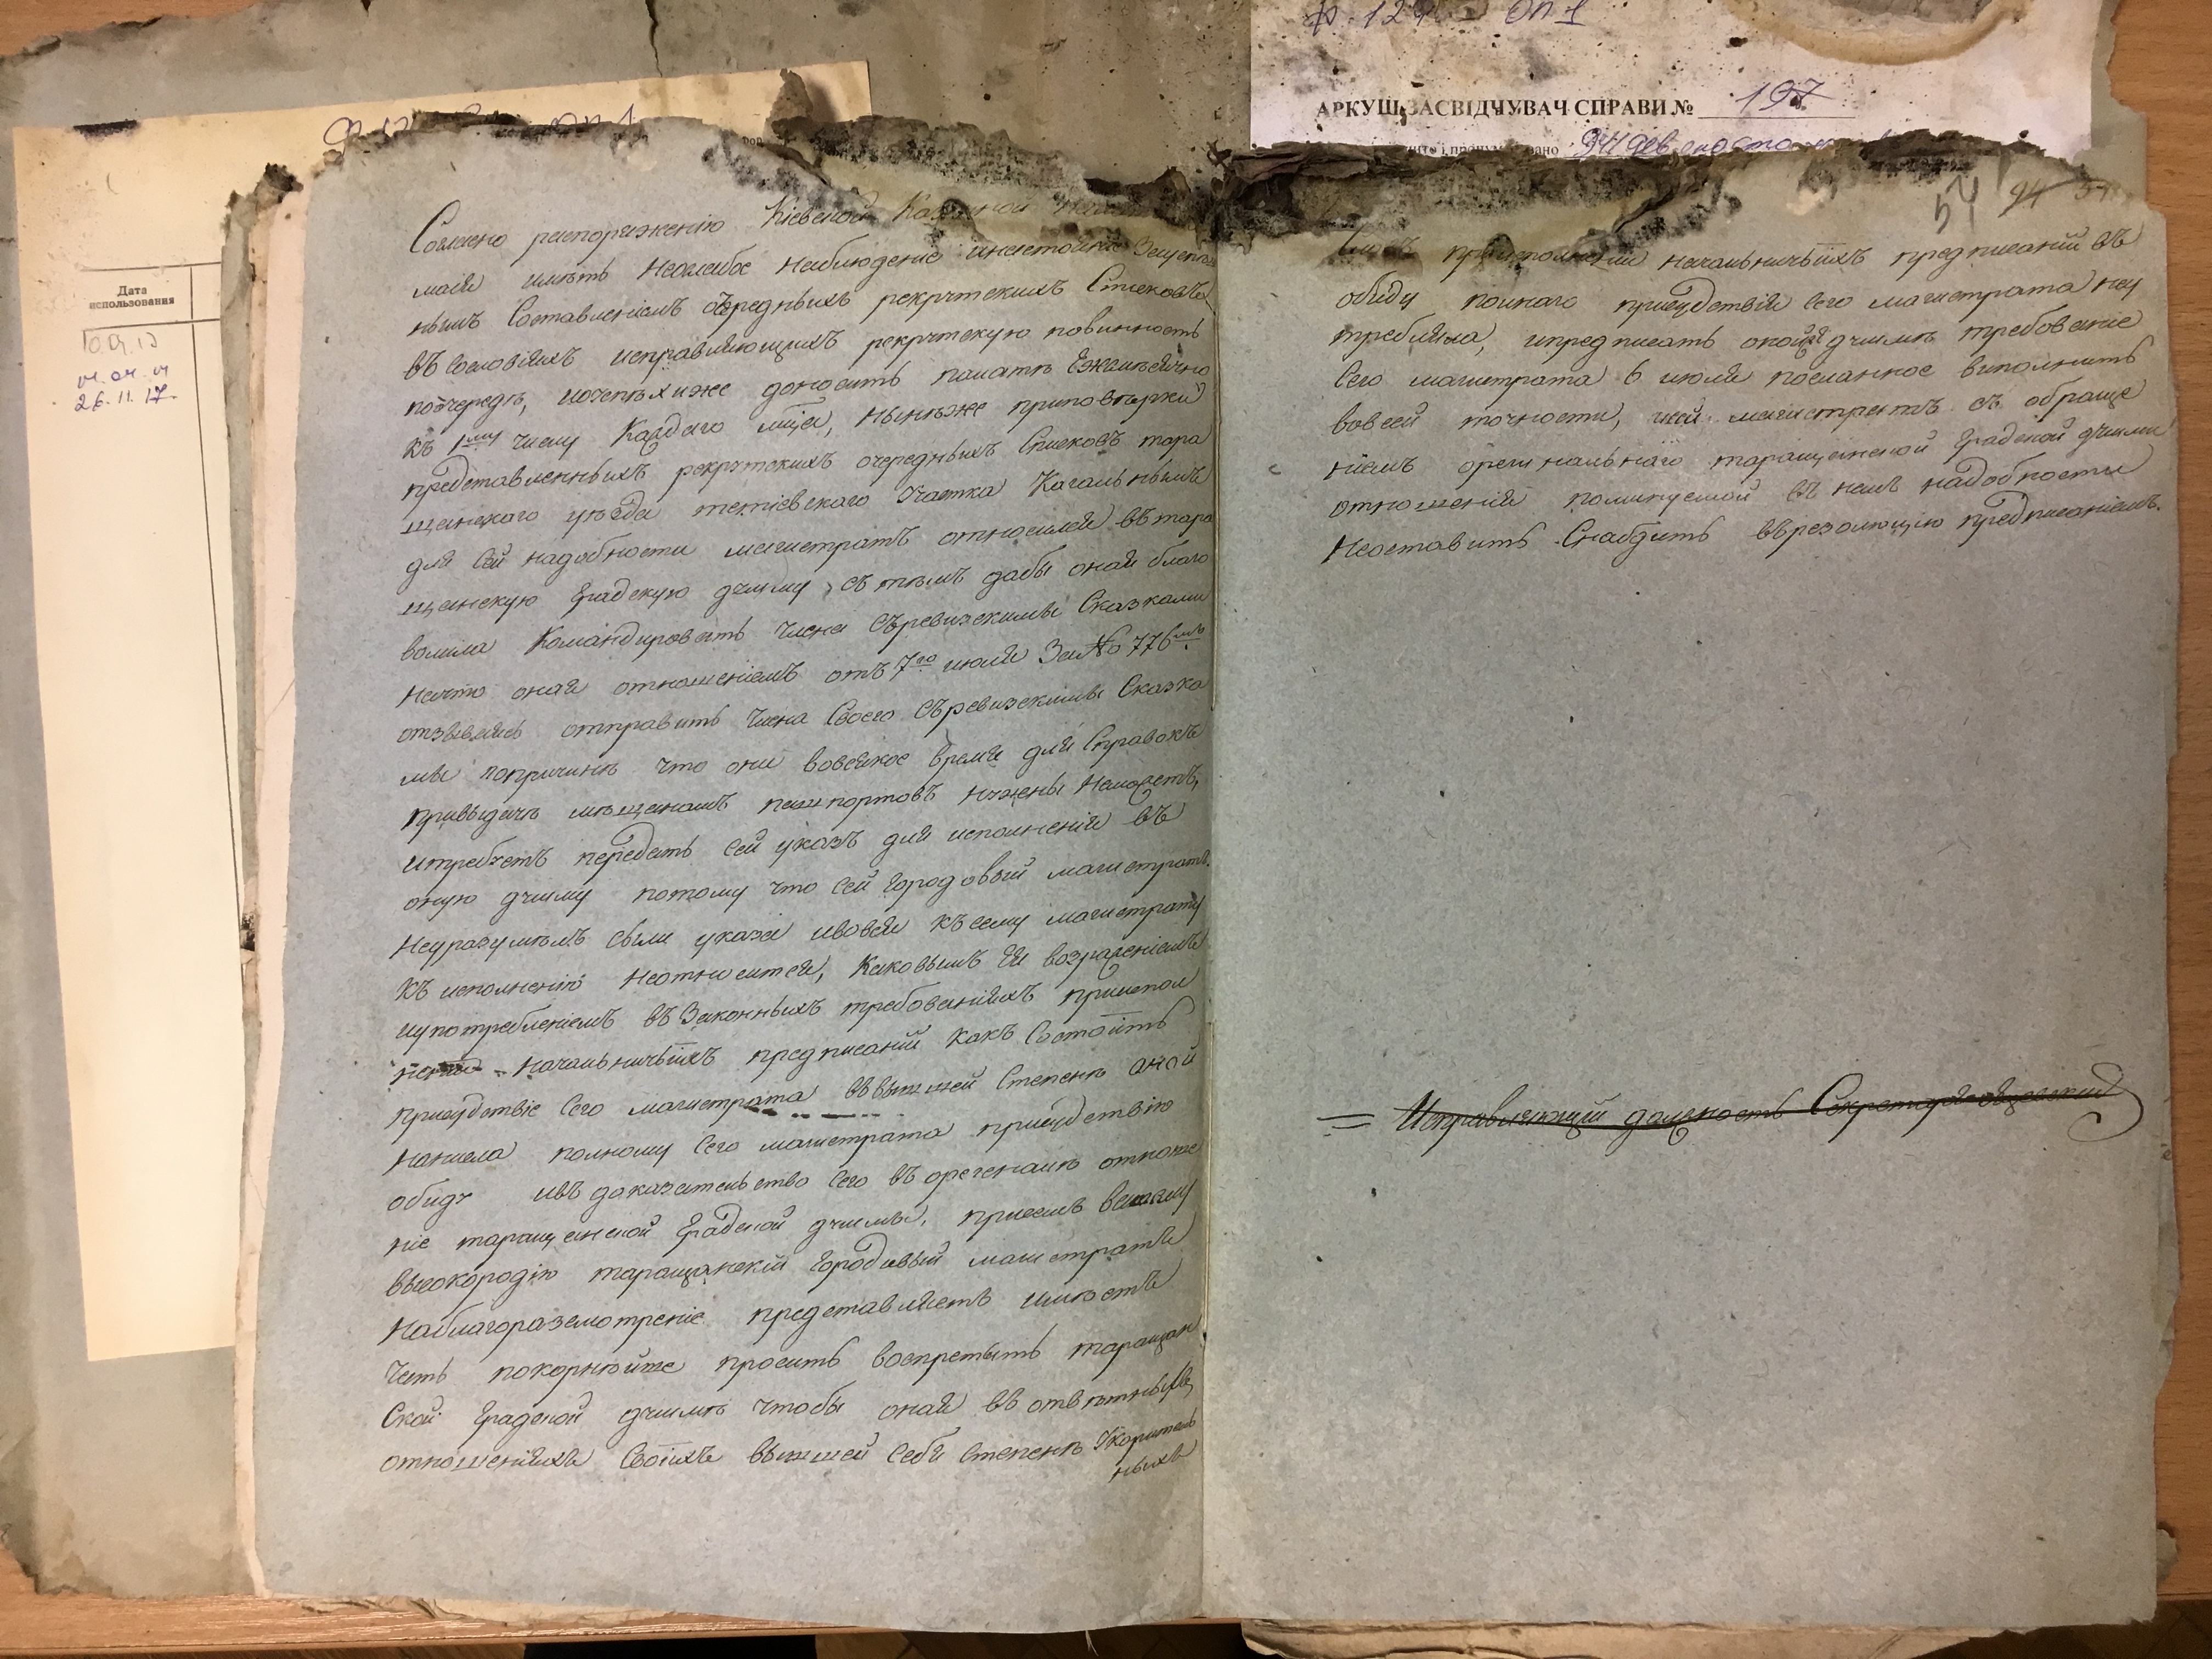 Дата
использования
26.11.17.
ф. 129 оп 1
АРКУШ-ЗАСВІДЧУВАЧ СПРАВИ № 197
54
94
Согласно распоряженію Кіевской Казенной
магія имѣть неослабое наблюденіе инастоянія
нымъ Составленіемъ очередныхъ рекрутскихъ Списковъ
въ сословіяхъ исправляющихъ рекрутскую повинность
поочередь, доносить палатѣ Ежемѣсячно
къ 1му числу Каждаго мца, нынѣже приповѣрки
представленныхъ рекрутскихъ очередныхъ Списковъ тара
щанскаго уѣзда тетіевскаго Участка Кагальнымъ
для Сей надобности магистратъ относился въ тара
щанскую Градскую думу съ тѣмъ дабы оная благо
волила Командировать Члена съревизскимы Сказками
начто оная отношеніемъ отъ 7го июля За№ 776мъ
отзываясь отправить Члена Своего съревизскимы Сказка
мы попричинѣ что они вовсякое время для Справокъ
привыдачѣ мѣщанамъ пашпортовъ нужены Неможетъ,
итребуетъ передать Сей указъ для исполненія въ
оную думу потому что Сей Городовый магистратъ
Неуразумѣлъ силы указа ивовся къ сему магистрату
къ исполненію неотносится, Каковымъ Ея возраженіемъ
иупотребленіемъ въ Законныхъ требованіяхъ приіспол
неніи начальничьіихъ предписаній какъ Состоитъ
присудствіе Сего магистрата ввышшей Степенѣ оной
нанесла полному Сего магистрата присудствію
обиду ивъ доказательство Сего въ орегеналѣ отноше
ніе таращанской Градской думы, приемлъ вашему
высокородію таращанскій Городовый магистратъ
Наблагоразсмотреніе представляетъ имѣетъ
Честь покорнѣйше просить воспретыть таращан
Ской Градской думѣ чтобы оная въ отвѣтныхъ
отношеніяхъ Своихъ вышшей себя степенѣ Укоритель
ныхъ
приисполненіи начальничьіихъ предписаній въ
обиду полнаго присудствія Сего магистрата неу
требляла, ипредписать оной думѣ требованіе
Сего магистрата 6 июля посланное виполнить
вовсей точности, магистратъ съ обраще
ніемъ орегинальнаго таращанской Градской думы
отношенія полинуемой въ немъ надобности
Неоставить Снабдить въ резолюцію предписаніемъ.
Исправляющій должность Секретаря